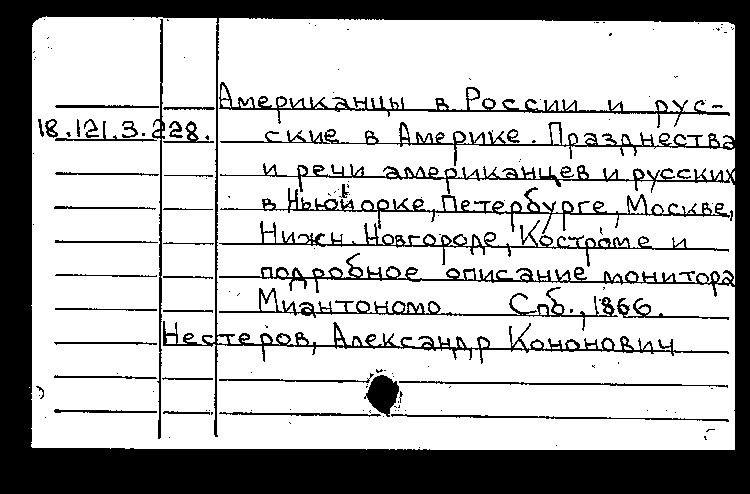 Американцы в России и рус-
18.121.3.228. ские в Америке. Празднества
и речи американцев и русских
в Ньюйорке, Петербурге, Москве,
Нижн. Новгороде, Костроме и
подробное описание монитора
Миантономо Спб., 1866.
Нестеров, Александр Кононович